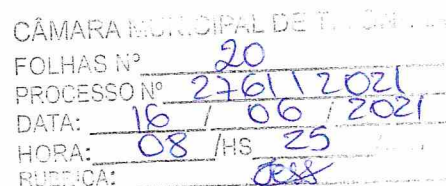 CÂMARA MUNICIPAL DE
FOLHAS Nº 20
PROCESSO Nº 2761 / 2021
DATA: 16 / 06 / 2021
HORA: 08 /HS 25
RUBRICA: